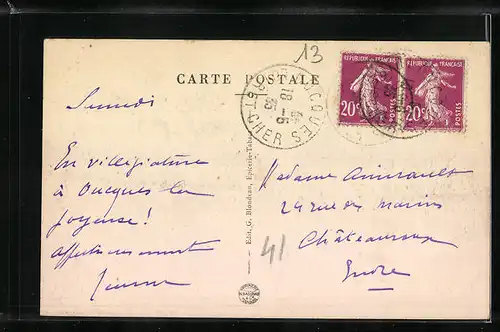 13
CARTE POSTALE
REPUBLIQUE FRANÇAISE
20c
POSTES
REPUBLIQUE FRANÇAISE
20c
POSTES
OUCQUES
18 - 5
36
LOIR ET CHER
Samedi
En villégiature
à Oucques la
joyeuse!
affectueusement
Jeanne
Edit. G. Blondeau, Epicerie-Tabac
41
Madame
24 rue des Marins
Châteauroux
Indre